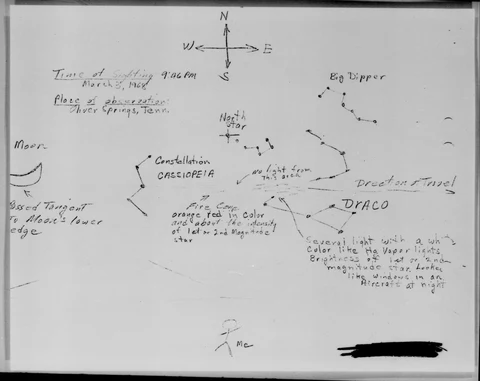 N
W E
S
Time of Sighting 9:06 PM
March 3, 1968
Place of observation:
Silver Springs, Tenn.
Big Dipper
North
Star
Moon
Constellation
CASSIOPEIA
No light from
This area
Direction of Travel
DRACO
Passed Tangent
To Moon's lower
edge
Fire
orange red in Color
and about the intensity
of 1st or 2nd Magnitude
star
Several light with a
Color like Hg Vapor lights
Brightness of 1st or 2nd
magnitude star. Looked
like windows in an
Aircraft at night
Me